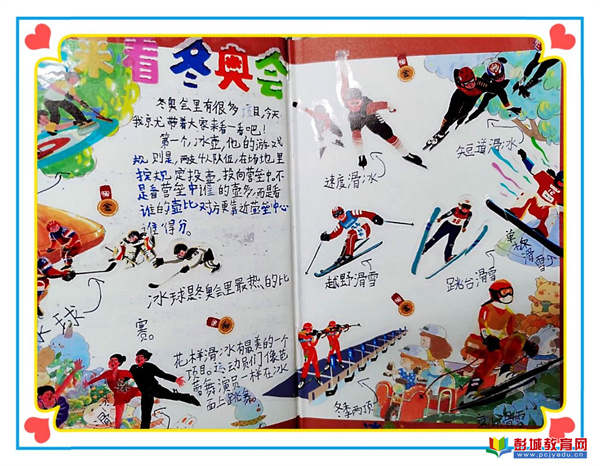 来看冬奥会
冬奥会里有很多项目,今天
我就带着大家来看一看吧!
第一个,冰壶,他的游戏
规则是,两支4人队伍,在场地里
按规定投壶,投向营垒中,不
是看营垒中谁的壶多,而是看
谁的壶比对方更靠近营垒中心
谁得分。
冰球
冰球是冬奥会里最热人的比
赛。
花样滑冰,有最美的一个
项目。运动员们像芭
蕾舞演员一样在冰
面上跳舞。
速度滑冰
短道滑冰
越野滑雪
跳台滑雪
冬季两项
彭城教育网
www.pcjyedu.cn